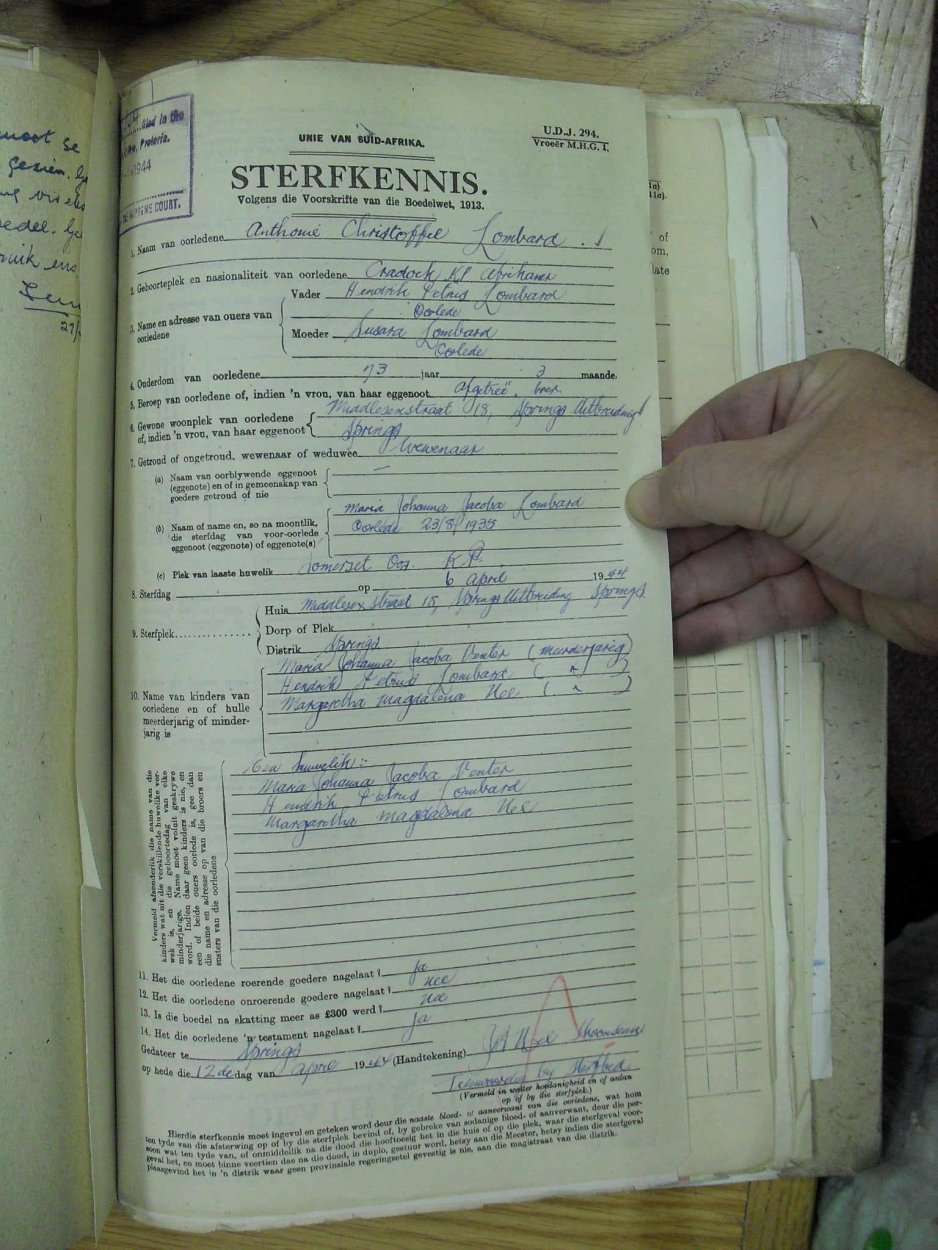 moot se
gesien. 
27/
Filed in the
Pretoria.
1944
SUPREME COURT.
UNIE VAN SUID-AFRIKA.
U.D.J. 294.
Vroeër M.H.G. 1.
STERFKENNIS.
Volgens die Voorskrifte van die Boedelwet, 1913.
1. Naam van oorledene Anthonie Christoffel Lombard
2. Geboorteplek en nasionaliteit van oorledene Cradock K.P. Afrikaner
3. Name en adresse van ouers van oorledene
Vader Hendrik Petrus Lombard
Oorlede
Moeder Susara Lombard
Oorlede
4. Ouderdom van oorledene 73 jaar 3 maande.
5. Beroep van oorledene of, indien 'n vrou, van haar eggenoot Afgetreë boer
6. Gewone woonplek van oorledene of, indien 'n vrou, van haar eggenoot
Middlesexstraat 18, Springs Uitbreiding
Springs
7. Getroud of ongetroud, wewenaar of weduwee Wewenaar
(a) Naam van oorblywende eggenoot (eggenote) en of in gemeenskap van goedere getroud of nie —
(b) Naam of name en, so na moontlik, die sterfdag van voor-oorlede eggenoot (eggenote) of eggenote(s)
Maria Johanna Jacoba Lombard
Oorlede 23/8/1935
(c) Plek van laaste huwelik Somerset Oos. K.P.
8. Sterfdag op 6 April 1944
9. Sterfplek
Huis Middlesex straat 18, Springs Uitbreiding Springs
Dorp of Plek
Distrik Springs
10. Name van kinders van oorledene en of hulle meerderjarig of minder-jarig is
Maria Johanna Jacoba Venter (meerderjarig)
Hendrik Petrus Lombard ( " )
Margaretha Magdalena Nel ( " )
Vermeld afsonderlik die name van die
kinders wat uit die verskillende huwelike ver-
wek is, en die geboortedag van elke
minderjarige. Name moet voluit geskrywe
word. Indien daar geen kinders is nie, en
een of beide ouers oorlede is, gee dan
die name en adresse op van die broers en
susters van die oorledene
Een huwelik:
Maria Johanna Jacoba Venter
Hendrik Petrus Lombard
Margaretha Magdalena Nel
11. Het die oorledene roerende goedere nagelaat? Ja
12. Het die oorledene onroerende goedere nagelaat? Nee
13. Is die boedel na skatting meer as £300 werd? Nee
14. Het die oorledene 'n testament nagelaat? Ja
Gedateer te Springs
op hede die 12de dag van April 1944 (Handtekening)
Teenwoordig by Sterfbed
(Vermeld in watter hoedanigheid en of asdan
op of by die sterfplek.)
Hierdie sterfkennis moet ingevul en geteken word deur die naaste bloed- of aanverwant van die oorledene, wat hom
ten tyde van die afsterwing op of by die sterfplek bevind of, by gebreke van sodanige bloed- of aanverwant, deur die per-
soon wat ten tyde van, of onmiddellik na die dood die hooftoesig het in die huis of op die plek, waar die sterfgeval voor-
geval het, en moet binne veertien dae na die dood, in duplo, gestuur word, hetsy aan die Meester, hetsy indien die sterfgeval
plaasgevind het in 'n distrik waar geen provinsiale regeringsetel gevestig is nie, aan die magistraat van die distrik.